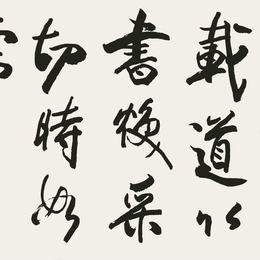 載道以
書後采
切時如